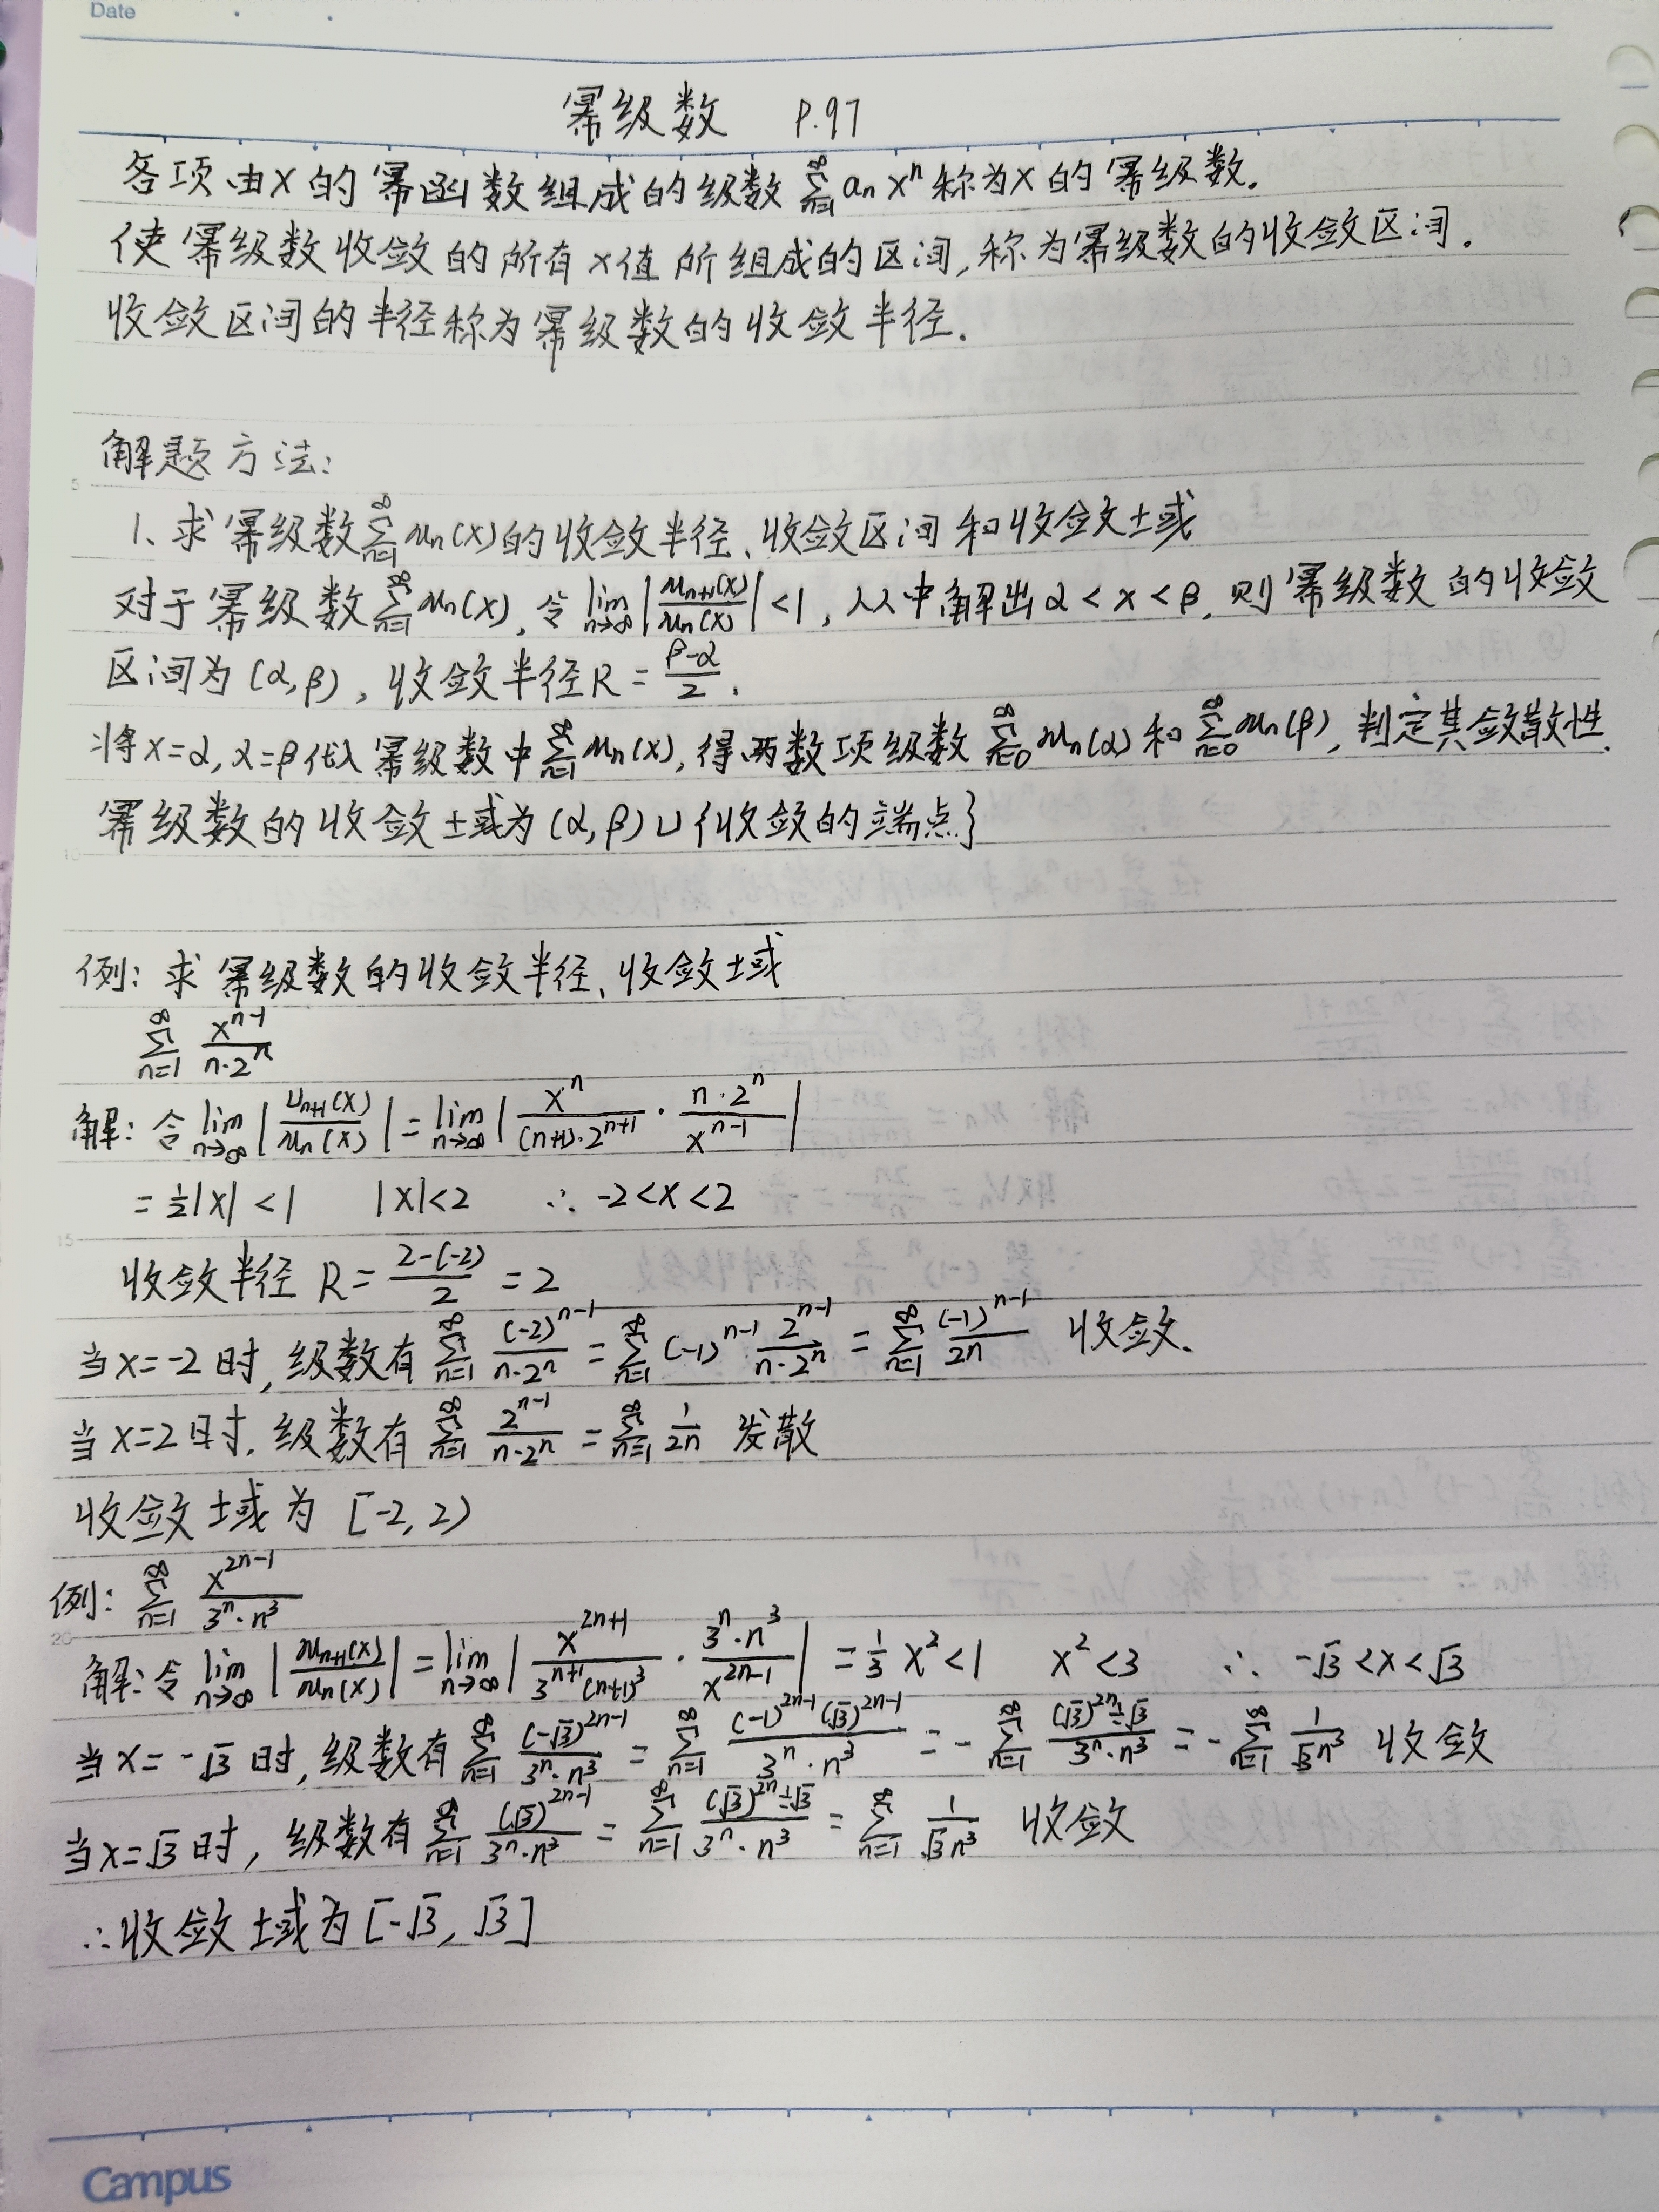 Date
幂级数 P.97
各项由x的幂函数组成的级数 ∑_{n=1}^{∞} aₙxⁿ 称为x的幂级数.
使幂级数收敛的所有x值所组成的区间,称为幂级数的收敛区间.
收敛区间的半径称为幂级数的收敛半径.
5
解题方法:
1、求幂级数 ∑_{n=1}^{∞} uₙ(x) 的收敛半径、收敛区间和收敛域
对于幂级数 ∑_{n=1}^{∞} uₙ(x), 令 lim_{n→∞} |uₙ₊₁(x)/uₙ(x)| < 1, 从中解出 α < x < β, 则幂级数的收敛
区间为 (α, β), 收敛半径 R = (β-α)/2.
将 x=α, x=β 代入幂级数中 ∑_{n=1}^{∞} uₙ(x), 得两数项级数 ∑_{n=0}^{∞} uₙ(α) 和 ∑_{n=0}^{∞} uₙ(β), 判定其敛散性.
幂级数的收敛域为 (α, β) ∪ {收敛的端点}
10
例: 求幂级数的收敛半径、收敛域
∑_{n=1}^{∞} x^{n-1}/(n·2ⁿ)
解: 令 lim_{n→∞} |uₙ₊₁(x)/uₙ(x)| = lim_{n→∞} |xⁿ/((n+1)·2^{n+1}) · n·2ⁿ/x^{n-1}|
= ½|x| < 1 |x|<2 ∴ -2<x<2
15
收敛半径 R = (2-(-2))/2 = 2
当x=-2时, 级数有 ∑_{n=1}^{∞} (-2)^{n-1}/(n·2ⁿ) = ∑_{n=1}^{∞} (-1)^{n-1} 2^{n-1}/(n·2ⁿ) = ∑_{n=1}^{∞} (-1)^{n-1}/2n 收敛.
当x=2时, 级数有 ∑_{n=1}^{∞} 2^{n-1}/(n·2ⁿ) = ∑_{n=1}^{∞} 1/2n 发散
收敛域为 [-2, 2)
例: ∑_{n=1}^{∞} x^{2n-1}/(3ⁿ·n³)
20
解: 令 lim_{n→∞} |uₙ₊₁(x)/uₙ(x)| = lim_{n→∞} |x^{2n+1}/(3^{n+1}(n+1)³) · 3ⁿ·n³/x^{2n-1}| = ⅓x² < 1 x² < 3 ∴ -√3 < x < √3
当x=-√3时, 级数有 ∑_{n=1}^{∞} (-√3)^{2n-1}/(3ⁿ·n³) = ∑_{n=1}^{∞} (-1)^{2n-1}(√3)^{2n-1}/(3ⁿ·n³) = -∑_{n=1}^{∞} (√3)^{2n}÷√3/(3ⁿ·n³) = -∑_{n=1}^{∞} 1/(√3n³) 收敛
当x=√3时, 级数有 ∑_{n=1}^{∞} (√3)^{2n-1}/(3ⁿ·n³) = ∑_{n=1}^{∞} (√3)^{2n}÷√3/(3ⁿ·n³) = ∑_{n=1}^{∞} 1/(√3n³) 收敛
∴收敛域为 [-√3, √3]
Campus